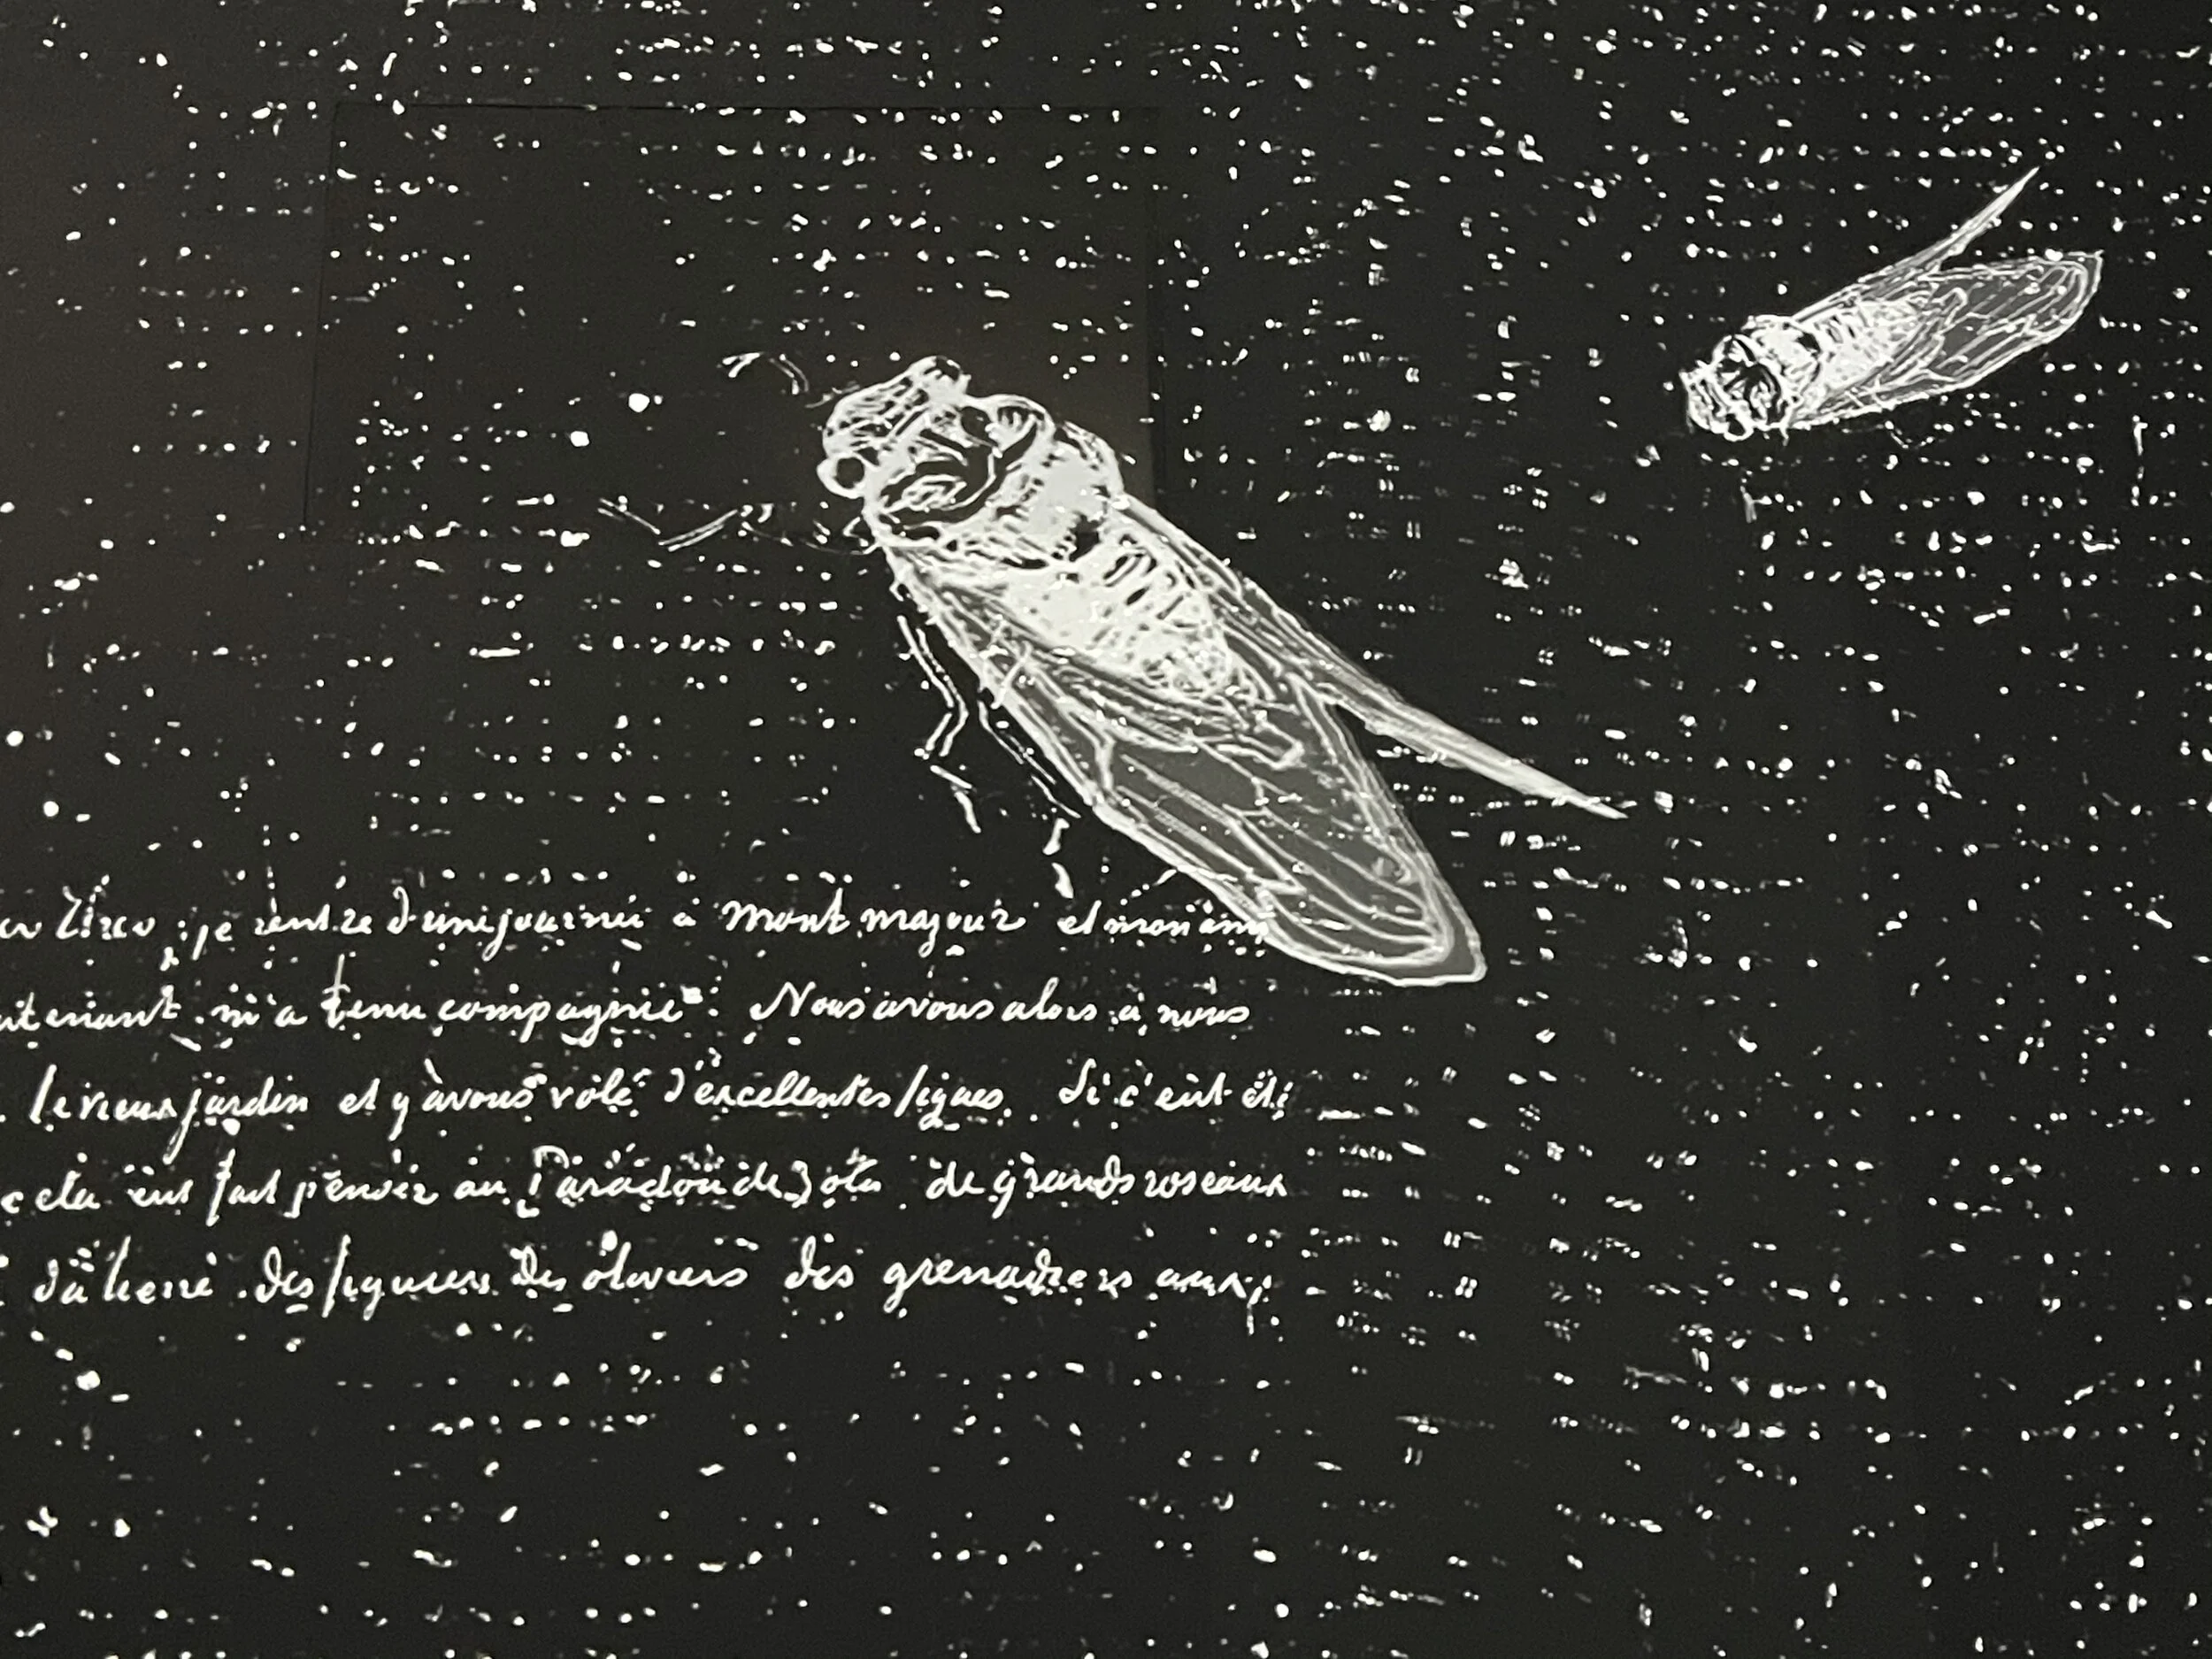 je rentre d'une journée à Mont majour et mon ami
m'a tenu compagnie. Nous avons alors à nous
le vieux jardin et y avons volé d'excellentes figues. Si c'eut été
cela eut fait penser au Paradou de Zola, de grands roseaux
du lierre des figuiers des oliviers des grenadiers aux